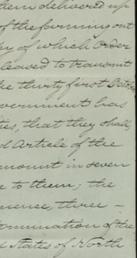 them delivered up
of the farming out
by of which Order
pleased to transmit
the thirty first
overnment has
ties, that they shall
d Article of the
amount in seven
e to them; the
nence, three —
ermination of the
d States of North